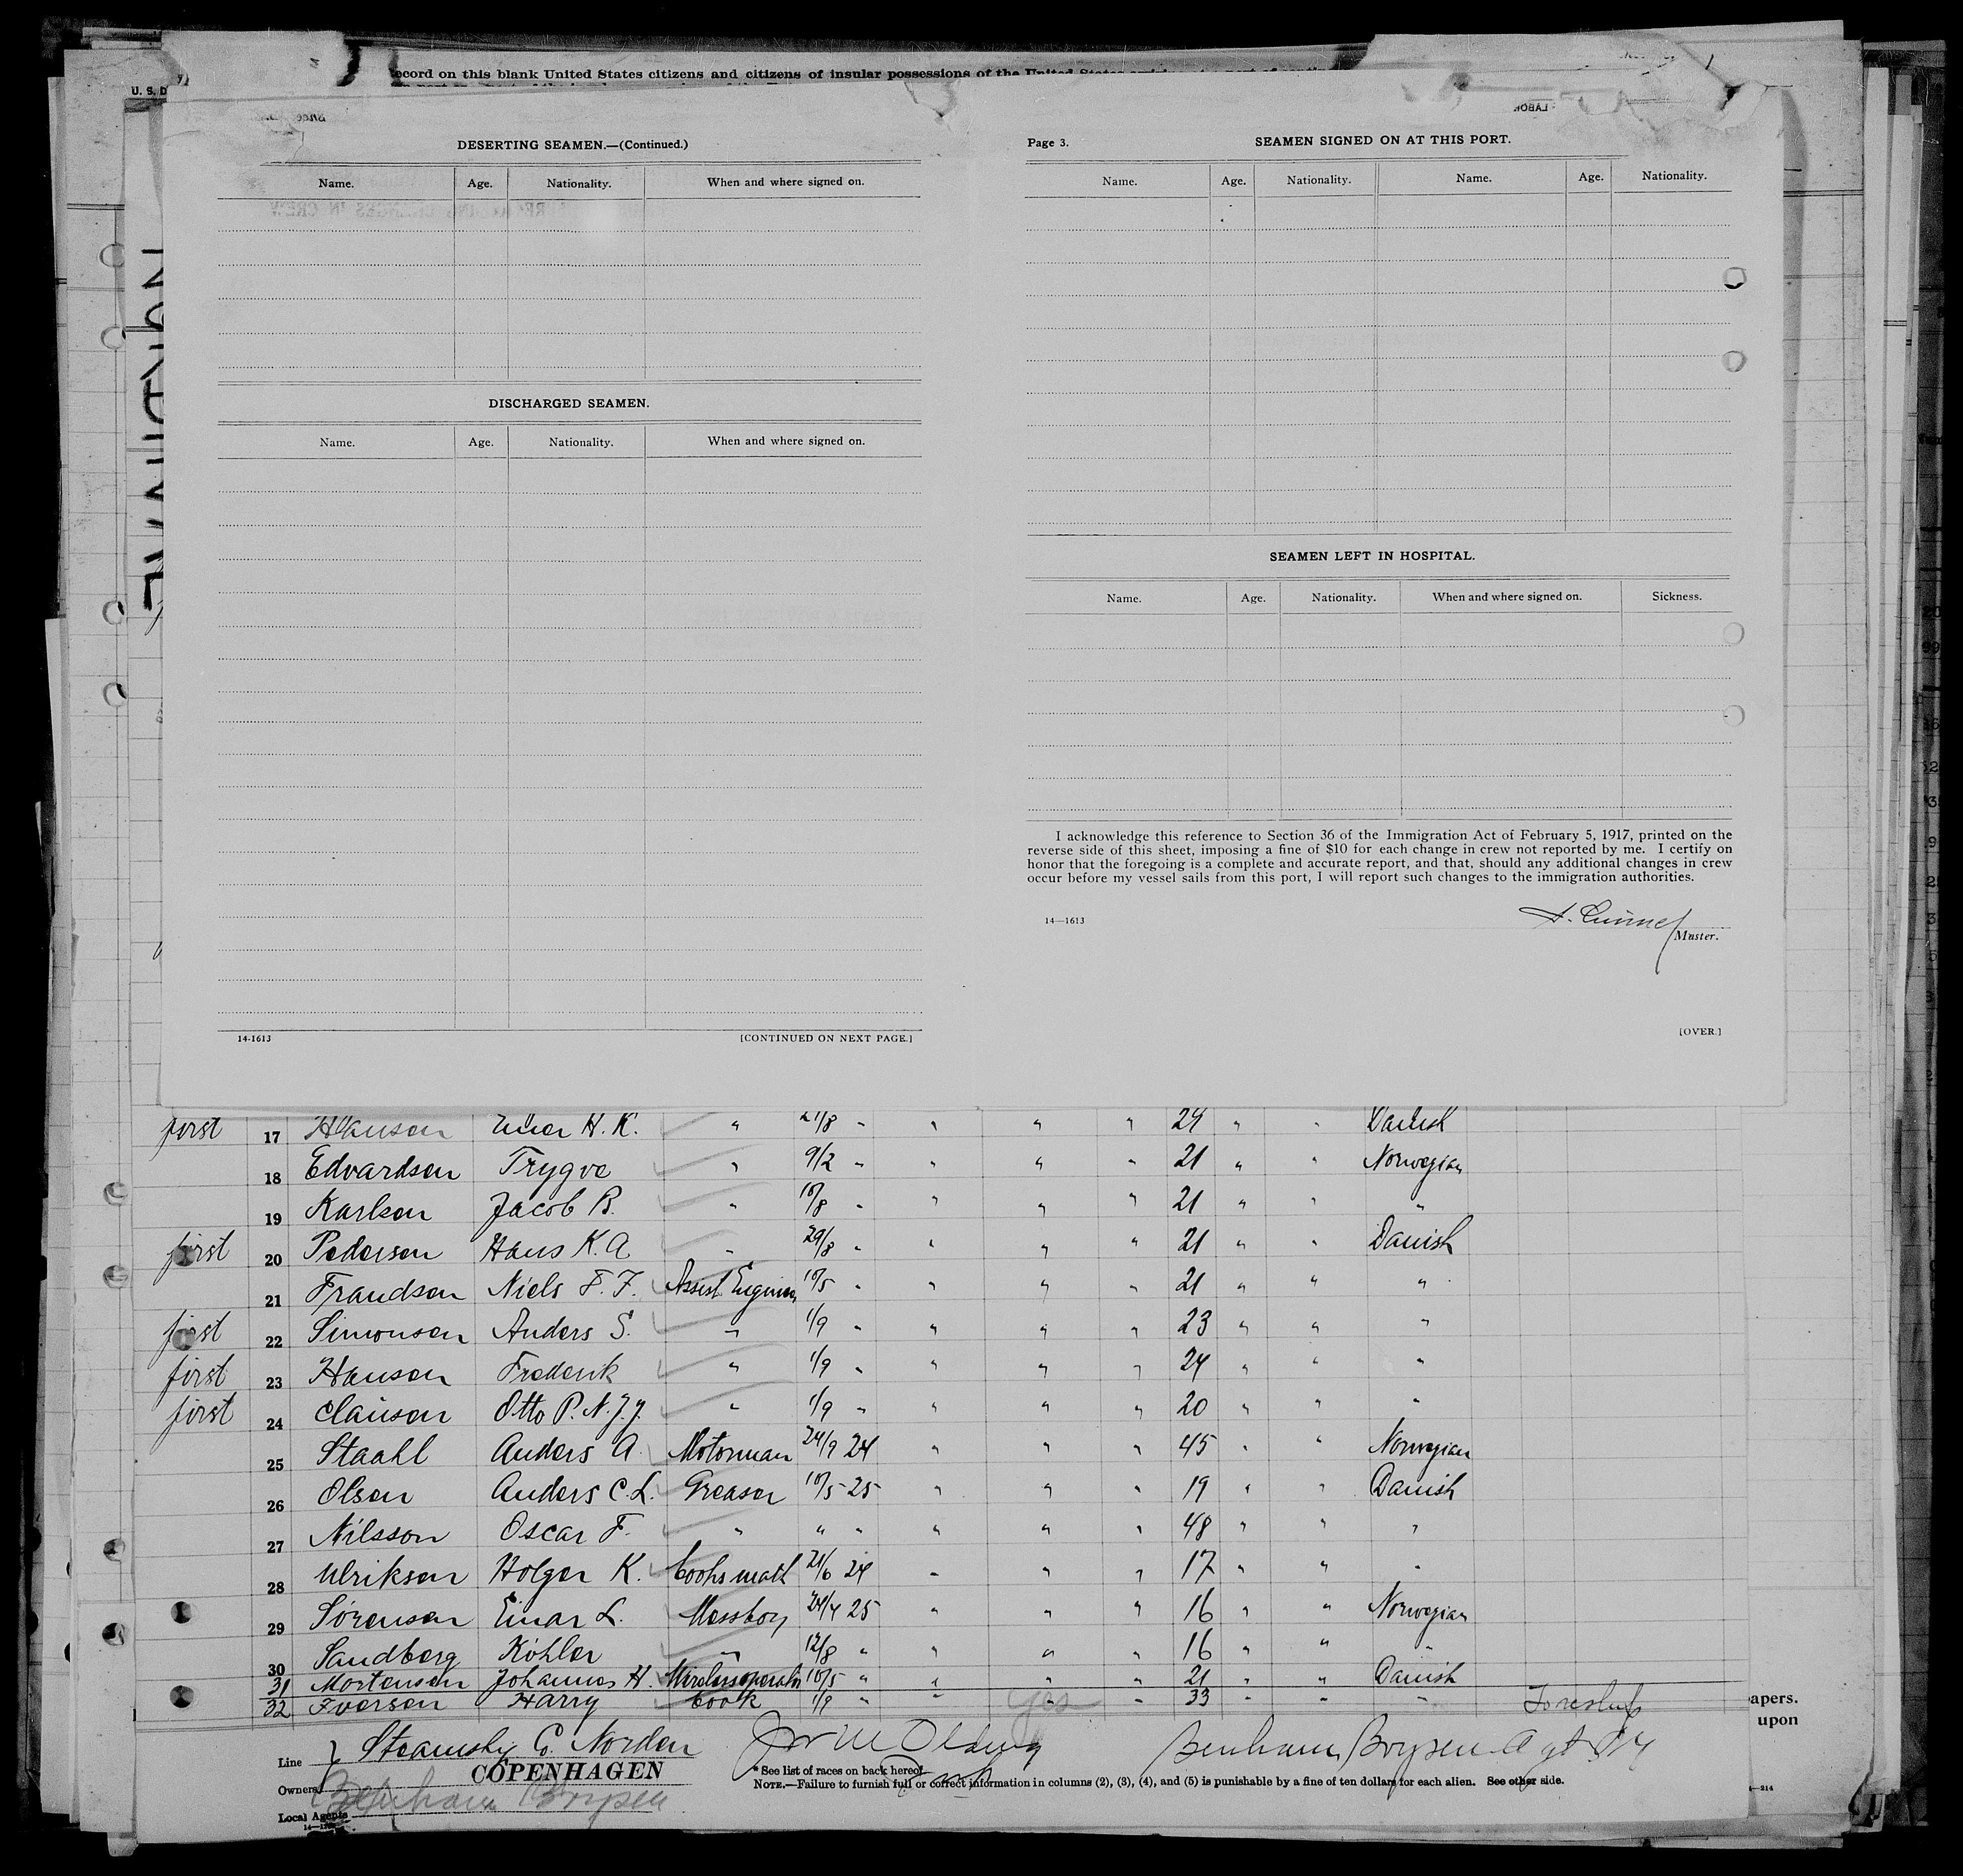 ecord on this blank United States citizens and citizens of insular possessions of the United States
U. S. D
DESERTING SEAMEN.—(Continued.)
Name. Age. Nationality. When and where signed on.
DISCHARGED SEAMEN.
Name. Age. Nationality. When and where signed on.
14-1613 [CONTINUED ON NEXT PAGE.]
Page 3. SEAMEN SIGNED ON AT THIS PORT.
Name. Age. Nationality. Name. Age. Nationality.
SEAMEN LEFT IN HOSPITAL.
Name. Age. Nationality. When and where signed on. Sickness.
I acknowledge this reference to Section 36 of the Immigration Act of February 5, 1917, printed on the
reverse side of this sheet, imposing a fine of $10 for each change in crew not reported by me. I certify on
honor that the foregoing is a complete and accurate report, and that, should any additional changes in crew
occur before my vessel sails from this port, I will report such changes to the immigration authorities.
14—1613
Master.
[OVER.]
first 17 Hansen Einar H. K. " 21/8 " " " " 24 " " Danish
18 Edvardsen Trygve " 9/2 " " " " 21 " " Norwegian
19 Karlsen Jacob B. " 10/8 " " " " 21 " " "
first 20 Pedersen Hans K. A " 29/8 " " " " 21 " " Danish
21 Frandsen Niels F. F. Assist. Engineer 10/5 " " " " 21 " " "
first 22 Simonsen Anders S. " 1/9 " " " " 23 " " "
first 23 Hansen Frederik " 1/9 " " " " 24 " " "
first 24 Clausen Otto P. N. J. J. " 1/9 " " " " 20 " " "
25 Staahl Anders A. Motorman 24/9 24 " " " 45 " " Norwegian
26 Olsen Anders C. L. Greaser 10/5 25 " " " 19 " " Danish
27 Nilsson Oscar F. " " " " " " 48 " " "
28 Ulriksen Holger K. Cooksmath 21/6 24 " " " 17 " " "
29 Sørensen Einar L. Messboy 24/4 25 " " " 16 " " Norwegian
30 Sandberg Köhler " 12/8 " " " " 16 " " "
31 Mortensen Johannes H. Wirelessoperator 10/5 " " " " 21 " " Danish
32 Iversen Harry Cook 1/9 " " Yes " 33 " " "
apers.
upon
Line Steamship Co. Norden
Benham Boysen Agt
Owners COPENHAGEN
* See list of races on back hereof.
NOTE.—Failure to furnish full or correct information in columns (2), (3), (4), and (5) is punishable by a fine of ten dollars for each alien. See other side.
Local Agents Benham Boysen